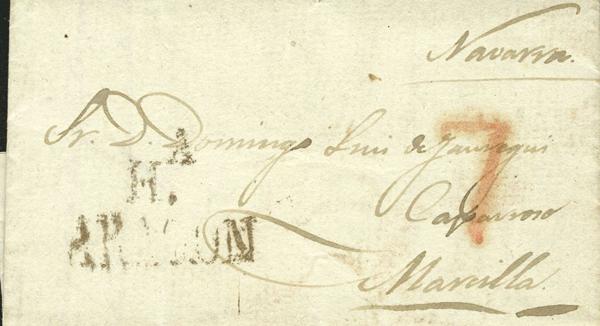 Navarra.
Sr. D. Domingo Luis de Jauregui
7
A
H.
ARAGON
Caparroso
Marcilla.